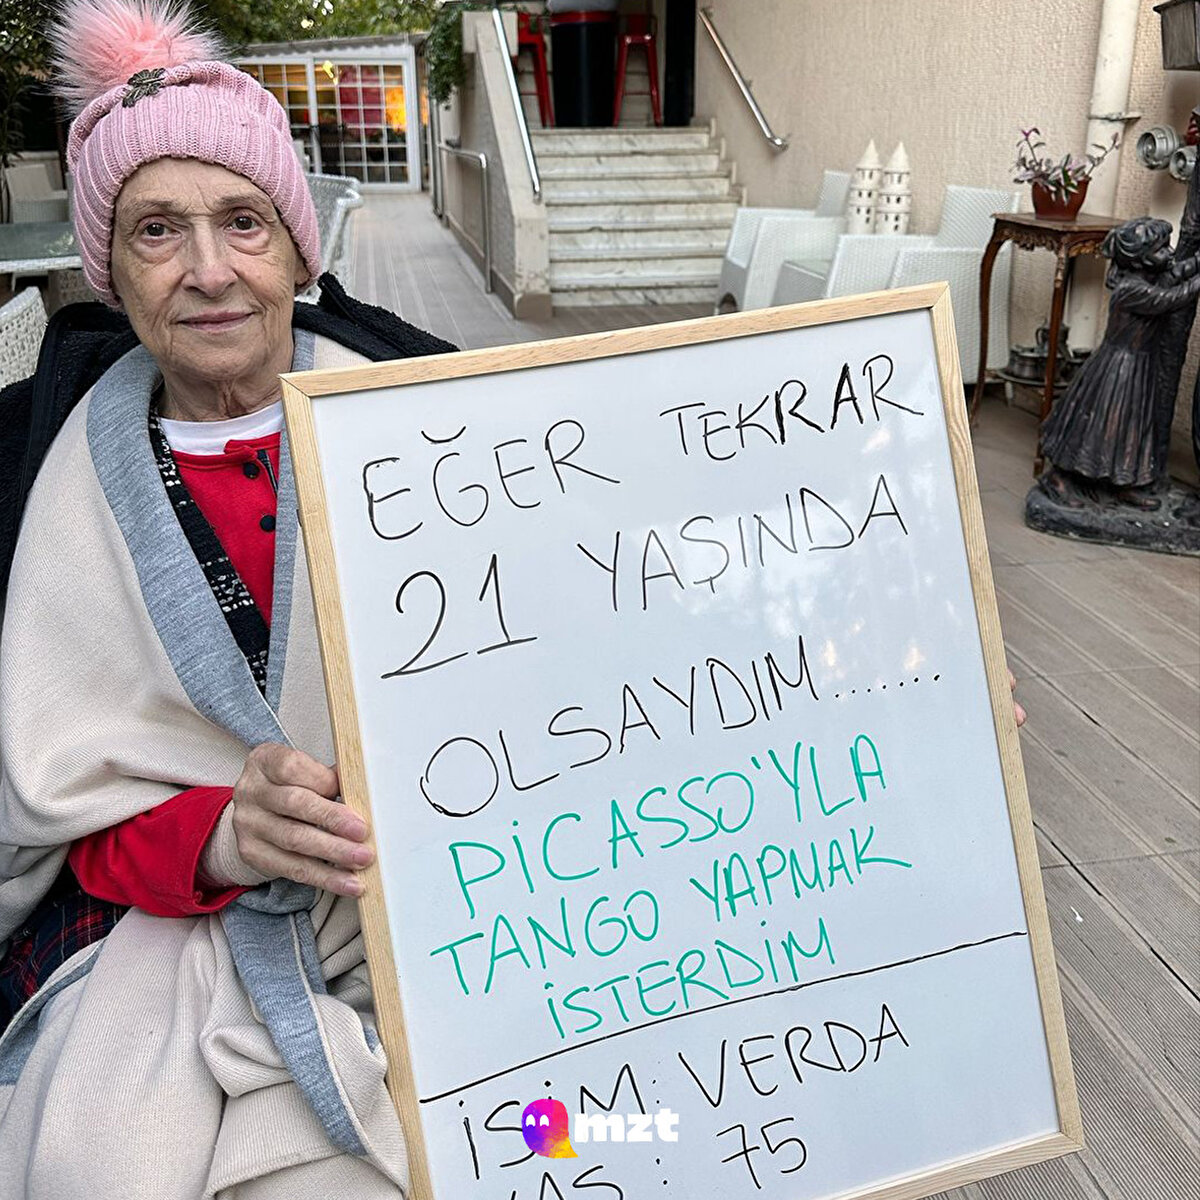 EĞER TEKRAR
21 YAŞINDA
OLSAYDIM.......
PİCASSO'YLA
TANGO YAPMAK
İSTERDİM
İSİM: VERDA
YAŞ: 75
mzt